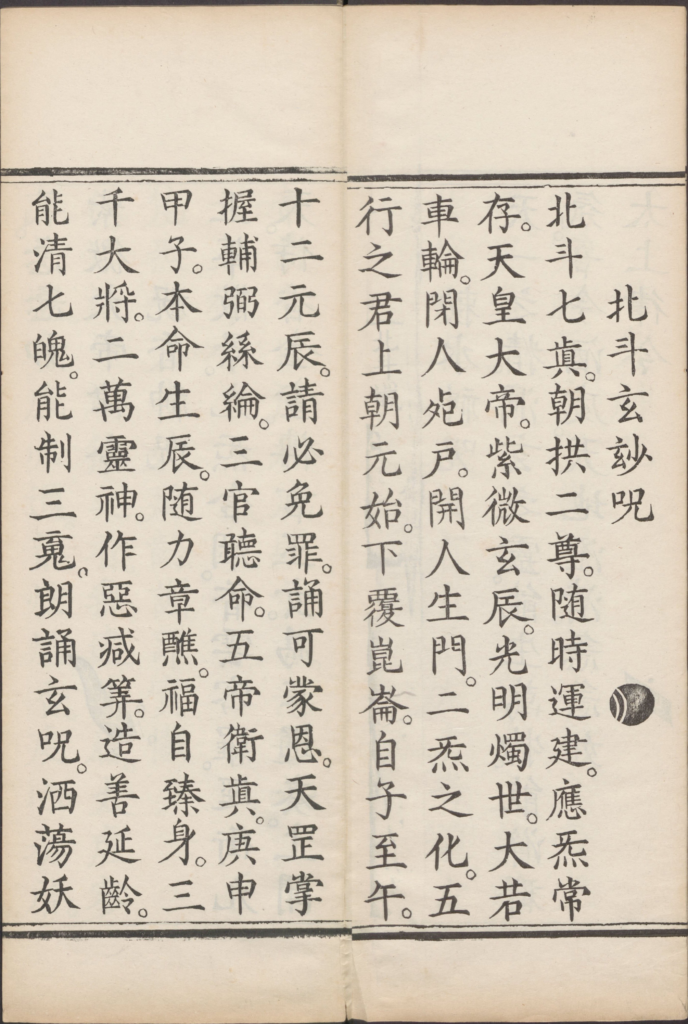 北斗玄玅呪
北斗七眞。朝拱二尊。随時運建。應炁常
存。天皇大帝。紫微玄辰。光明燭世。大若
車輪。閉人夗戸。開人生門。二炁之化。五
行之君上朝元始。下覆崑崙。自子至午。
十二元辰。請必免罪。誦可蒙恩。天罡掌
握輔弼絲綸。三官聽命。五帝衛眞。庚申
甲子。本命生辰。随力章醮。福自臻身。三
千大將。二萬靈神。作惡減筭。造善延齡。
能清七魄。能制三䰟。朗誦玄呪。洒蕩妖